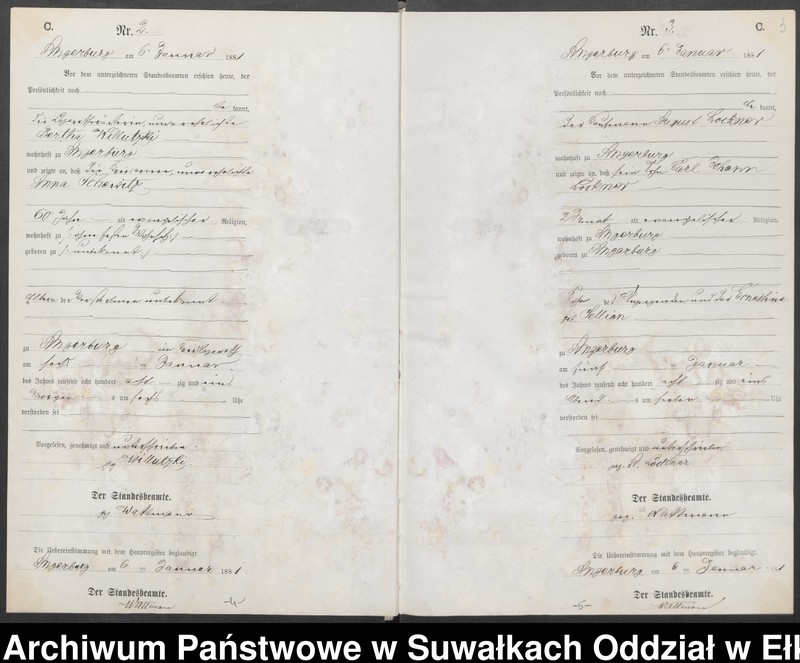 C.
Nr. 2.
Angerburg am 6. Januar 1881
Vor dem unterzeichneten Standesbeamten erschien heute, der
Persönlichkeit nach
kannt,
die unverehelichte
Bertha Willutzki
wohnhaft zu Angerburg
und zeigte an, daß die unverehelichte
Anna
60 Jahre alt evangelischer Religion,
wohnhaft zu ohne festen Wohnsitz
geboren zu unbekannt
Eltern der Verstorbenen unbekannt
zu Angerburg im
am sechs ten Januar
des Jahres tausend acht hundert acht zig und eins
Morgens um sechs Uhr
verstorben sei
Vorgelesen, genehmigt und unterschrieben.
gez. Willutzki.
Der Standesbeamte.
gez. Wattmann
Die Uebereinstimmung mit dem Hauptregister beglaubigt.
Angerburg am 6 ten Januar 1881
Der Standesbeamte.
Wattmann
Nr. 3.
C.
3
Angerburg am 6. Januar 1881
Vor dem unterzeichneten Standesbeamten erschien heute, der
Persönlichkeit nach
be kannt,
der Kaufmann August Lockner
wohnhaft zu Angerburg
und zeigte an, daß sein Sohn Carl Johann
Lockner
2 Monat alt evangelischer Religion,
wohnhaft zu Angerburg
geboren zu Angerburg
Sohn des Anzeigenden und der Ernestine
geb.
zu Angerburg
am fünf ten Januar
des Jahres tausend acht hundert acht zig und eins
Abends um sieben Uhr
verstorben sei
Vorgelesen, genehmigt und unterschrieben
gez. A. Lockner
Der Standesbeamte.
gez. Wattmann
Die Uebereinstimmung mit dem Hauptregister beglaubigt.
Angerburg am 6 ten Januar 1881
Der Standesbeamte.
Wattmann
Archiwum Państwowe w Suwałkach Oddział w Ełk